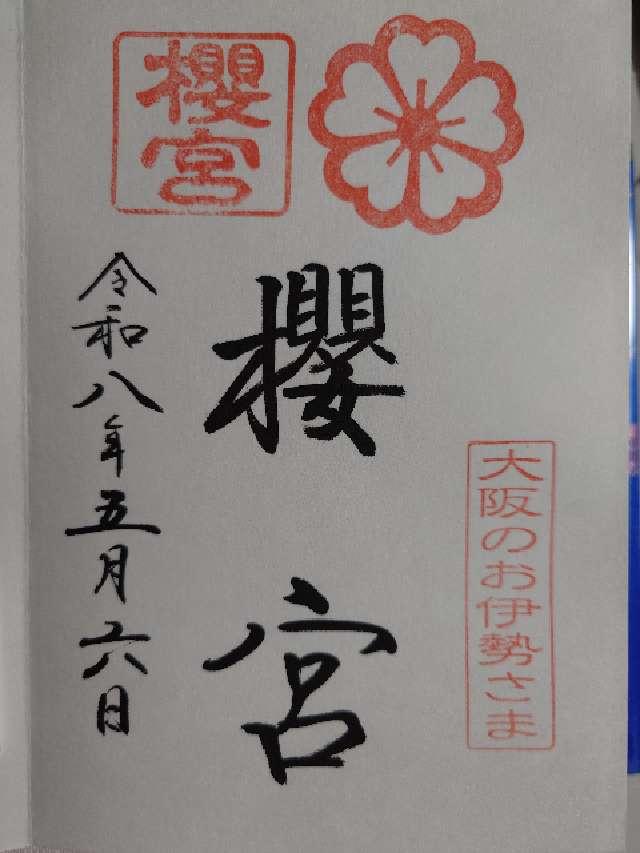 大阪のお伊勢さま
櫻宮
櫻宮
令和八年五月六日